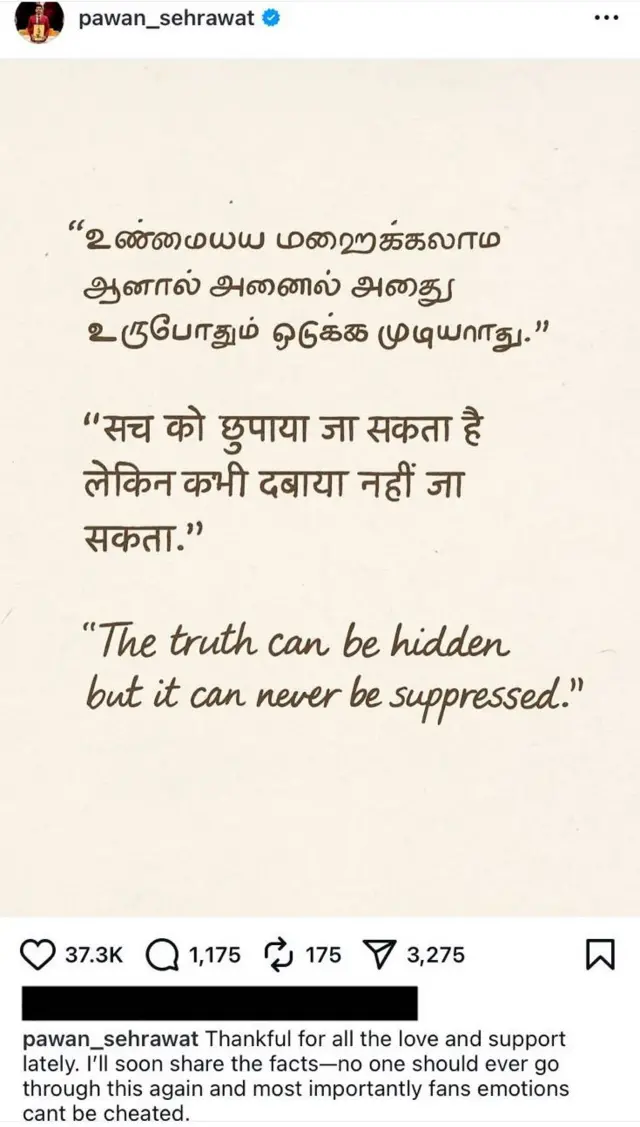 pawan_sehrawat
“உண்மையய மறைக்கலாம
ஆனால் அனைால் அனது
உருபோதும் ஒடுக்க முடியாாது.”
“सच को छुपाया जा सकता है
लेकिन कभी दबाया नहीं जा
सकता.”
“The truth can be hidden
but it can never be suppressed.”
37.3K 1,175 175 3,275
pawan_sehrawat Thankful for all the love and support
lately. I’ll soon share the facts—no one should ever go
through this again and most importantly fans emotions
cant be cheated.